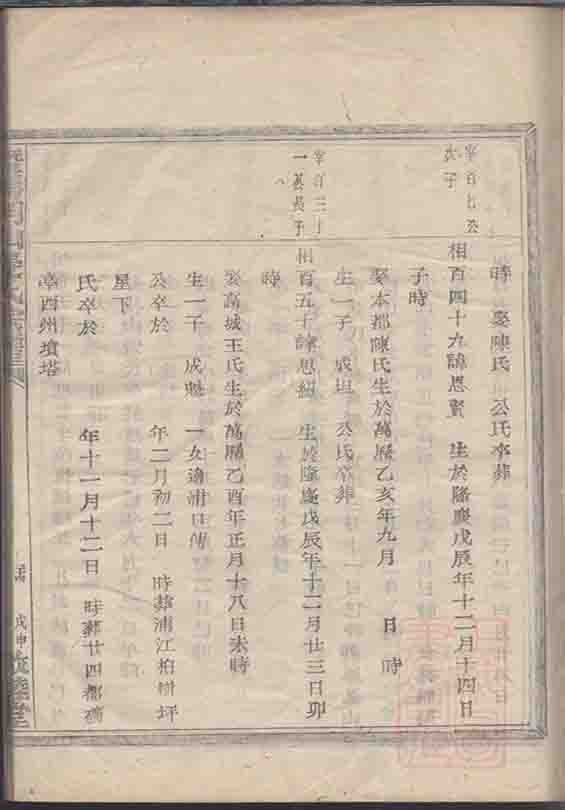 時 娶陳氏 公氏卒葬
宰百七公
次子
相百四十九諱思賢 生於隆慶戊辰年十二月十四日
子時
娶本都陳氏生於萬曆乙亥年九月 日 時
生一子 成坦 公氏卒葬
宰百三十
一公長子
相百五十諱思紹 生於隆慶戊辰年十二月廿三日卯
時
娶高城王氏生於萬曆乙酉年正月十八日未時
生一子 成魁 一女適浦口傅
公卒於 年二月初二日 時葬浦江柏樹坪
星下
氏卒於 年十一月十二日 時葬廿四都
亭西州墳塔
戊申 睦堂